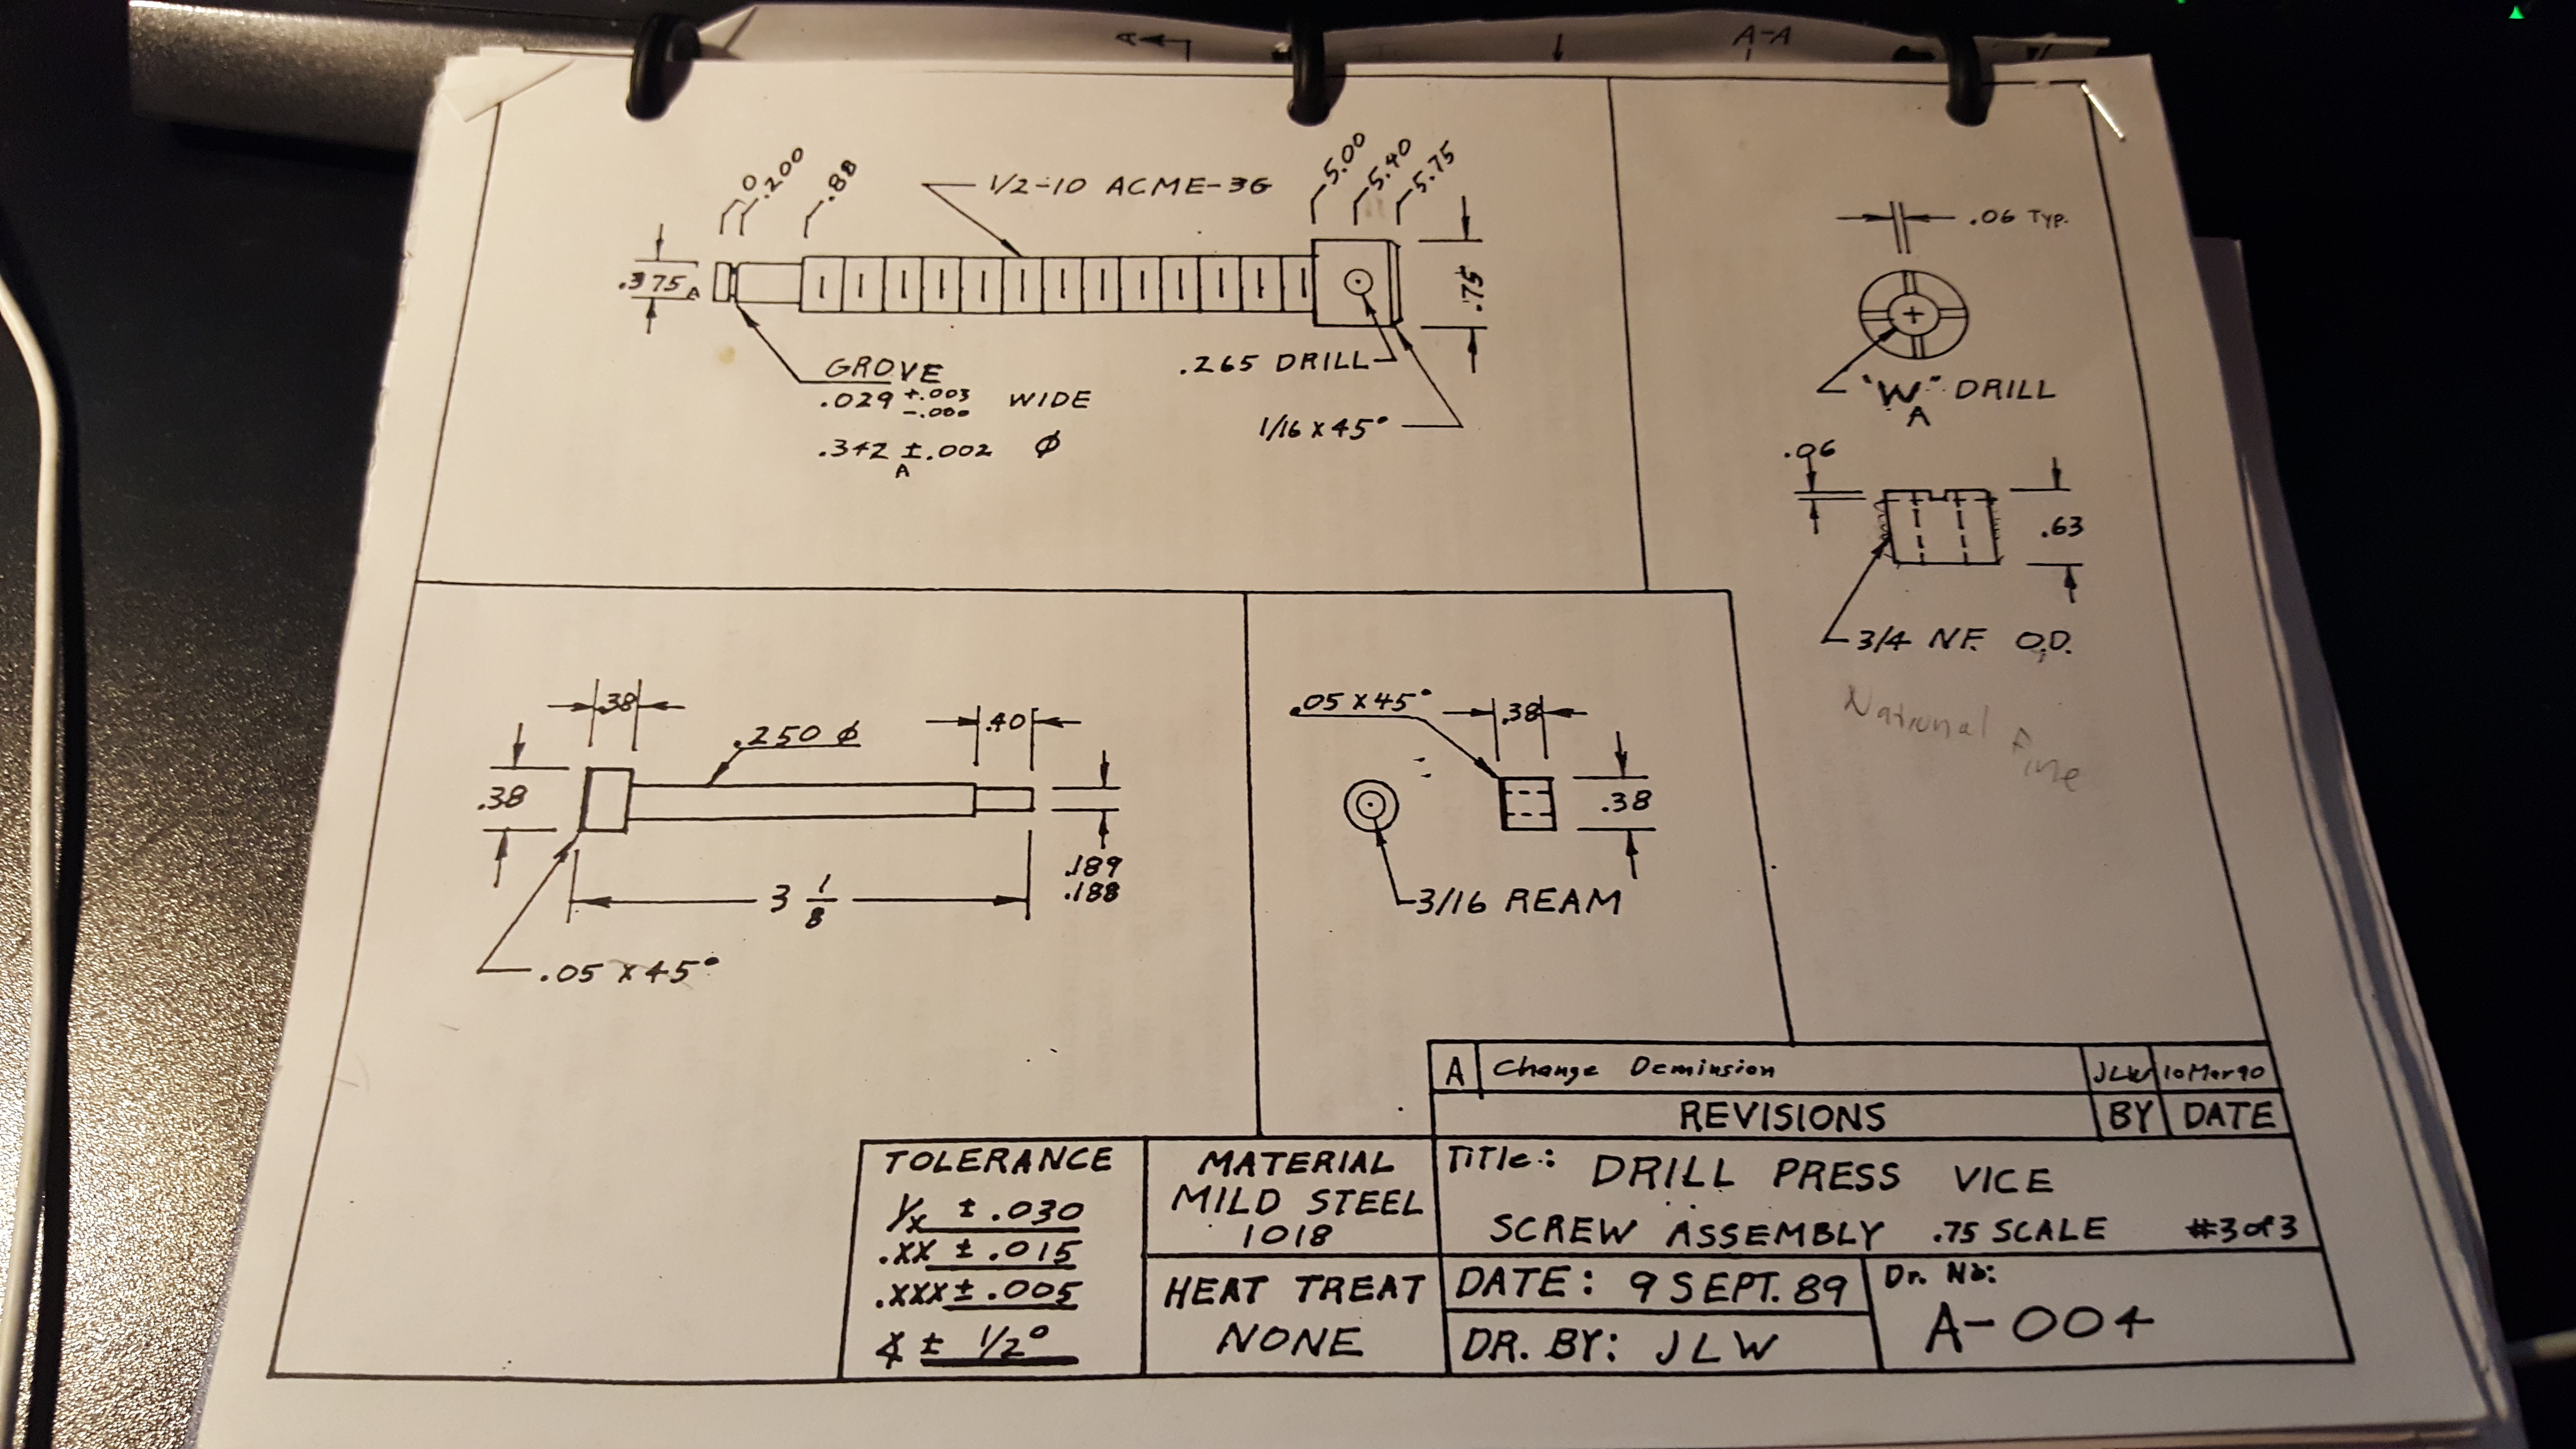 A
A-A
0
.200
.88
1/2-10 ACME-3G
5.00
5.40
5.75
.375 A
.75
GROVE
.029 +.003 -.000 WIDE
.342 ±.002 ϕ
A
.265 DRILL
1/16 X 45°
.06 TYP.
"W" DRILL
A
.06
.63
3/4 NF. O.D.
National Fine
.38
.250 ϕ
.40
.38
.189
.188
3 1/8
.05 X 45°
.05 X 45°
.38
.38
3/16 REAM
A Change Deminsion JLW 10 Mar 90
REVISIONS BY DATE
TOLERANCE
1/x ± .030
.XX ± .015
.XXX ± .005
∡ ± 1/2°
MATERIAL
MILD STEEL
1018
HEAT TREAT
NONE
Title: DRILL PRESS VICE
SCREW ASSEMBLY .75 SCALE #3 of 3
DATE: 9 SEPT. 89
DR. BY: JLW
Dr. No:
A-004